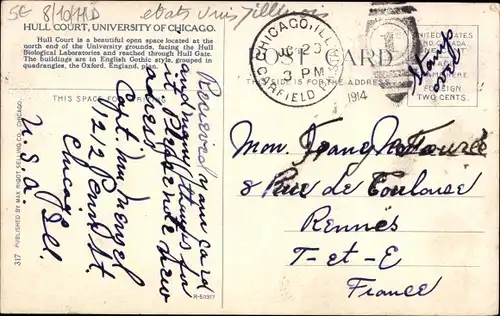 5E 8/10 HD états unis Illinois
HULL COURT, UNIVERSITY OF CHICAGO.
Hull Court is a beautiful open space located at the
north end of the University grounds, facing the Hull
Biological Laboratories and reached through Hull Gate.
The buildings are in English Gothic style, grouped in
quadrangles, the Oxford, England, plan.
THIS SPACE FOR
Recieved your card
and many thanks for
it Please note new
adress
Capt. Wm Mengel
1212 Penn St.
Chicago Ill.
U.S.A.
317 PUBLISHED BY MAX RIGOT SELLING CO., CHICAGO.
R-50317
CHICAGO, ILL.
20
3 PM
1914
GARFIELD
POST CARD
THIS SIDE IS FOR THE ADDRESS
UNITED STATES
AND
FOREIGN
TWO CENTS.
Stamp
over
Mon. Fourée
8 Rue de Toulouse
Rennes
I-et-E
France